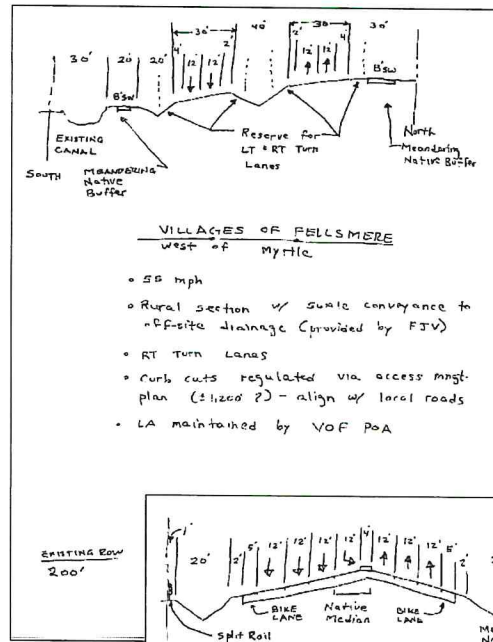 30' 40' 30'
30' 20' 20' 4' 12' 12' 2' 2' 12' 12' 4' 30'
8'SW 8'SW
EXISTING CANAL
Reserve for LT & RT Turn Lanes
North
SOUTH
MEANDERING Native Buffer
Meandering Native Buffer
VILLAGES OF FELLSMERE
West of Myrtle
• 55 mph
• Rural section w/ swale conveyance to
off-site drainage (provided by FJV)
• RT Turn Lanes
• Curb cuts regulated via access mngt.
plan (±1,200' ?) - align w/ local roads
• LA maintained by VOF POA
EXISTING ROW
200'
1' 20' 2' 5' 12' 12' 12' 12' 4' 12' 12' 12' 5' 2'
BIKE LANE
Native Median
BIKE LANE
Split Rail